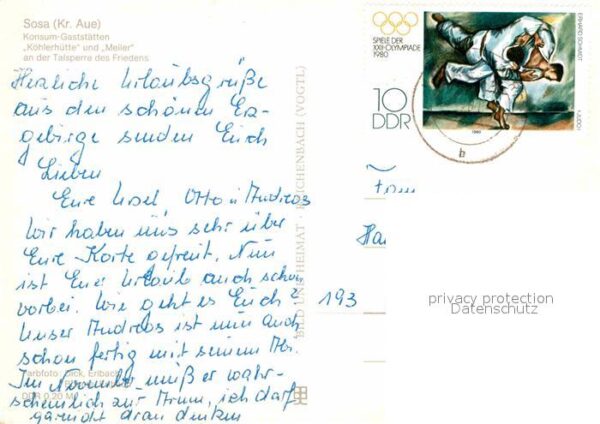 Sosa (Kr. Aue)
Konsum-Gaststätten
„Köhlerhütte" und „Meiler"
an der Talsperre des Friedens
Herzliche Urlaubsgrüße
aus dem schönen Erz-
gebirge senden Euch
Lieben
Eure Ursel, Otto u Andreas
Wir haben uns sehr über
Eure Karte gefreut. Nun
ist Euer Urlaub auch schon
vorbei. Wie geht es Euch?
Unser Andreas ist nun auch
schon fertig mit seinem Abi.
Im November muß er wahr-
scheinlich zur Armee, ich darf
garnicht dran denken
Farbfoto: Dick, Erlbach
DDR 0,20 M
BILD UND HEIMAT REICHENBACH (VOGTL)
SPIELE DER
XXII. OLYMPIADE
1980
10
DDR
ERHARD SCHMIDT
1980
Fam
193
privacy protection
Datenschutz